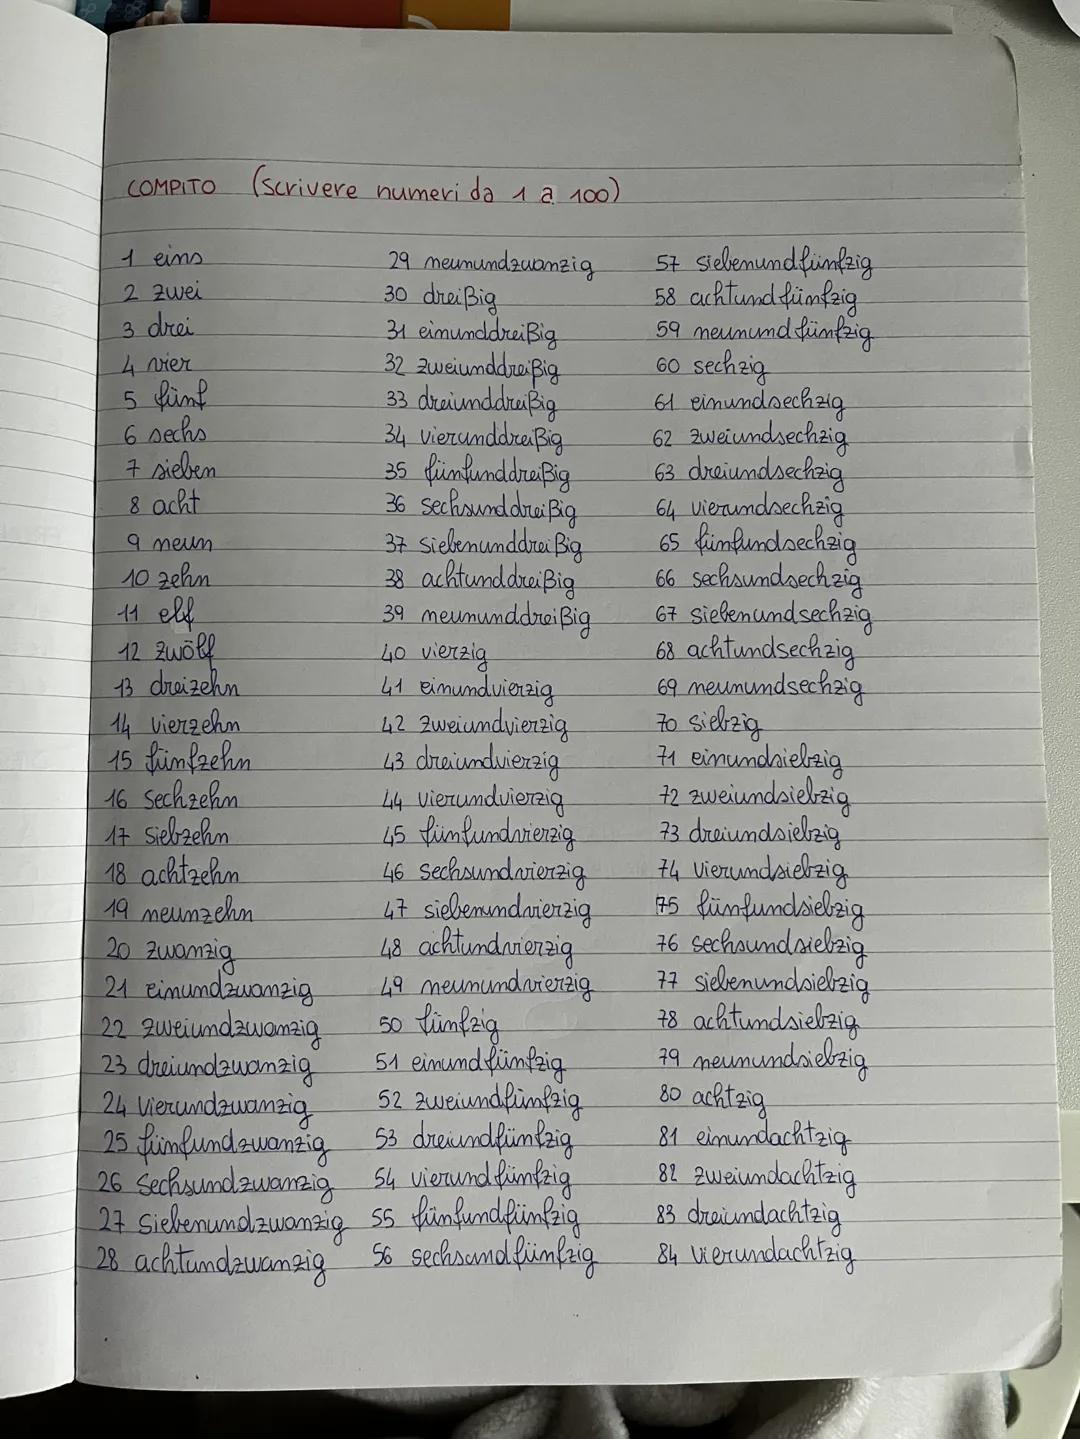 COMPITO (scrivere numeri da 1 a 100)
1 eins
2 zwei
3 drei
4 vier
5 fünf
6 sechs
7 sieben
8 acht
9 neun
10 zehn
11 elf
12 zwölf
13 dreizehn
14 vierzehn
15 fünfzehn
16 sechzehn
17 siebzehn
18 achtzehn
19 neunzehn
20 zwanzig
21 einundzwanzig
22 zweiundzwanzig
23 dreiundzwanzig
24 vierundzwanzig
25 fünfundzwanzig
26 sechsundzwanzig
27 siebenundzwanzig
28 achtundzwanzig
29 neunundzwanzig
30 dreißig
31 einunddreißig
32 zweiunddreißig
33 dreiunddreißig
34 vierunddreißig
35 fünfunddreißig
36 sechsunddreißig
37 siebenunddreißig
38 achtunddreißig
39 neununddreißig
40 vierzig
41 einundvierzig
42 zweiundvierzig
43 dreiundvierzig
44 vierundvierzig
45 fünfundvierzig
46 sechsundvierzig
47 siebenundvierzig
48 achtundvierzig
49 neunundvierzig
50 fünfzig
51 einundfünfzig
52 zweiundfünfzig
53 dreiundfünfzig
54 vierundfünfzig
55 fünfundfünfzig
56 sechsundfünfzig
57 siebenundfünfzig
58 achtundfünfzig
59 neunundfünfzig
60 sechzig
61 einundsechzig
62 zweiundsechzig
63 dreiundsechzig
64 vierundsechzig
65 fünfundsechzig
66 sechsundsechzig
67 siebenundsechzig
68 achtundsechzig
69 neunundsechzig
70 siebzig
71 einundsiebzig
72 zweiundsiebzig
73 dreiundsiebzig
74 vierundsiebzig
75 fünfundsiebzig
76 sechsundsiebzig
77 siebenundsiebzig
78 achtundsiebzig
79 neunundsiebzig
80 achtzig
81 einundachtzig
82 zweiundachtzig
83 dreiundachtzig
84 vierundachtzig